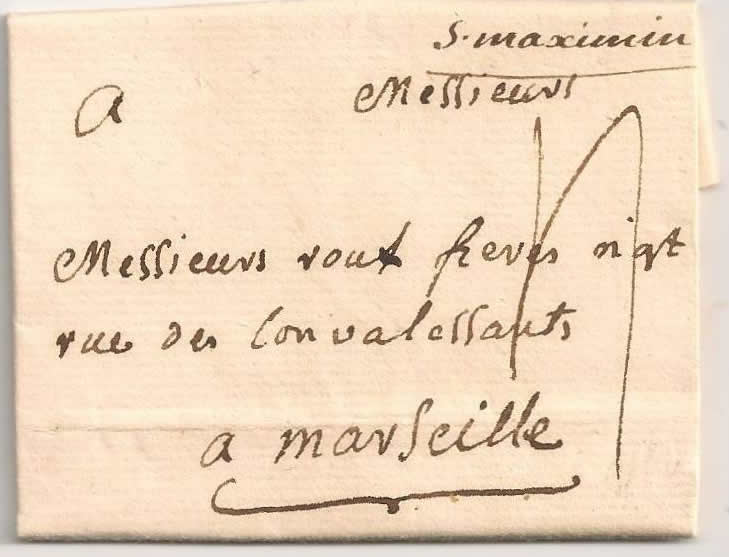 S. maximin
A Messieurs
Messieurs roux freres
rue des Convalessants
a marseille